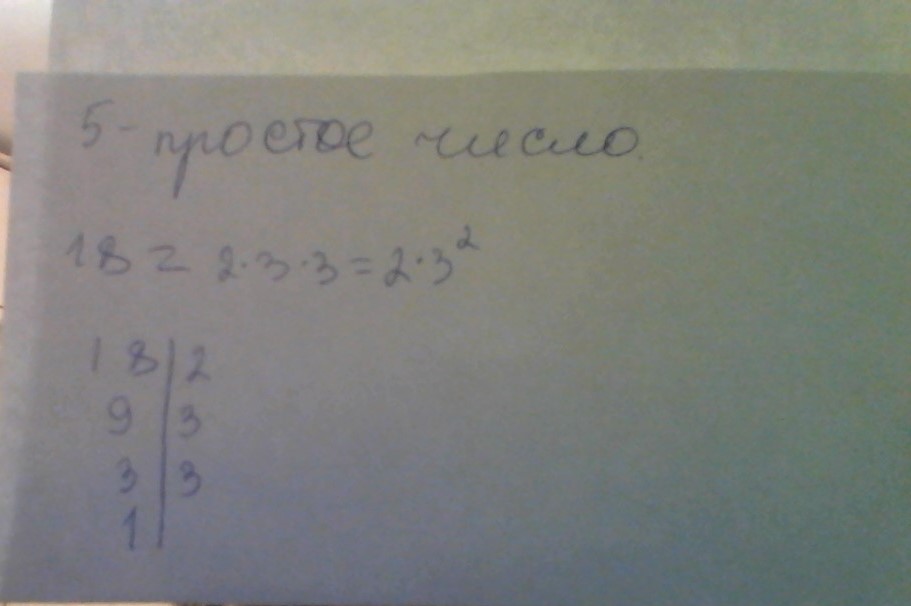 5 - простое число.
18 = 2·3·3 = 2·3²
18 | 2
9 | 3
3 | 3
1 |